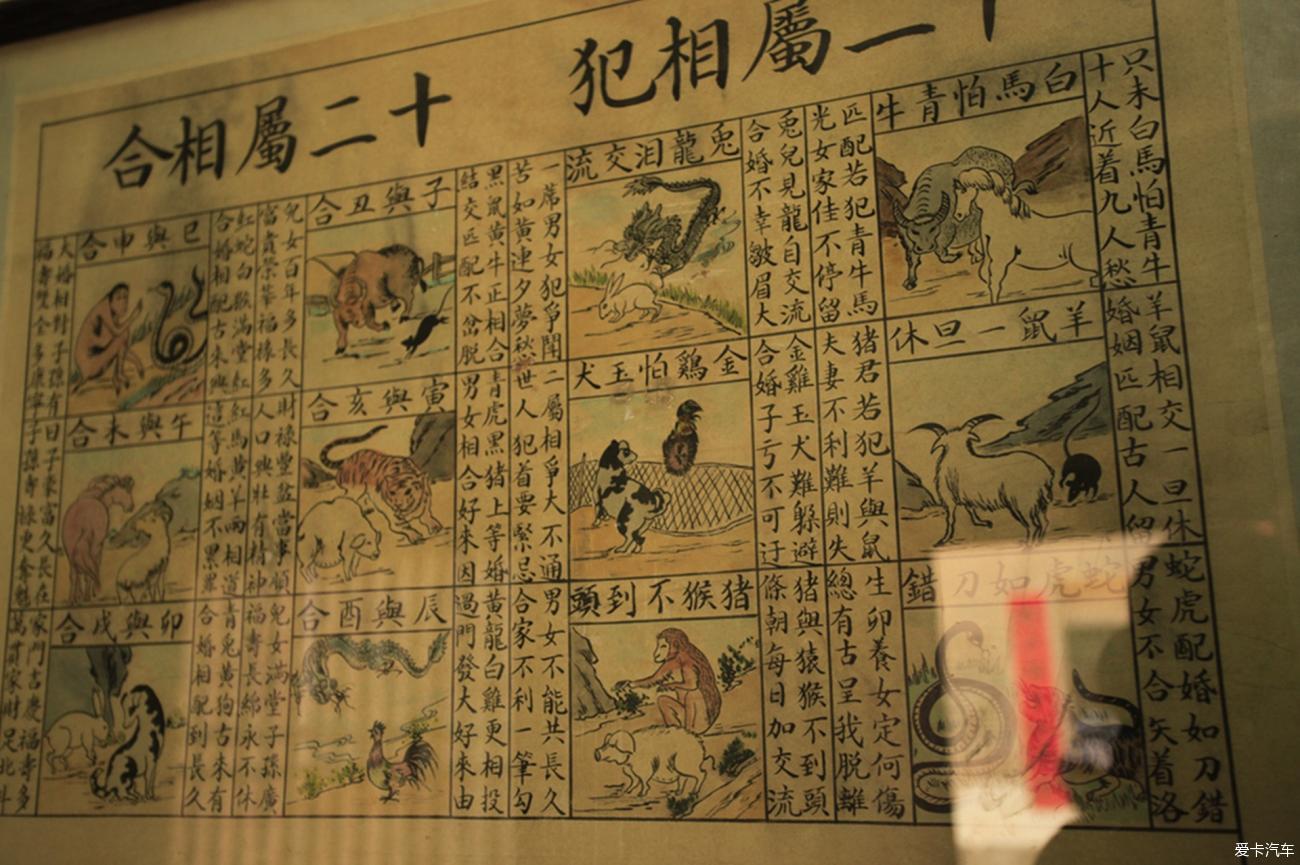 十二屬相犯
只未白馬怕青牛
十人近着九人愁
白馬怕青牛
匹配若犯青牛馬
光女家佳不停留
羊鼠相交一旦休
婚姻匹配古人留
羊鼠一旦休
猪君若犯羊與鼠
夫妻不利難則失
蛇虎配婚如刀錯
男女不合矢着洛
蛇虎如刀錯
生卯養女定何傷
總有古呈我脱離
兎兒見龍自交流
合婚不幸皺眉大
兎龍泪交流
一蓆男女犯爭閙
苦如黄連夕夢愁
金雞玉犬難躲避
合婚子亏不可迂
金鷄怕玉犬
二屬相爭大不通
世人犯着要緊忌
猪與猿猴不到頭
條朝每日加交流
猪猴不到頭
男女不能共長久
合家不利一筆勾
十二屬相合
黑鼠黄牛正相合
結交匹配不岔脱
子與丑合
兒女百年多長久
富貴榮華福祿多
青虎黑猪上等婚
男女相合好來因
寅與亥合
財禄豐盆當事順
人口興壯有精神
黄龍白雞更相投
過門發大好來由
辰與酉合
兒女滿堂子孫廣
福壽長綿永不休
紅蛇白猴满堂紅
合婚相配古來興
巳與申合
大婚相對子孫有
福壽雙全多康寧
紅馬黄羊兩相道
這等婚姻不累罪
午與未合
日子來富久長在
子孫壽祿更奪魁
青兎黄狗古來有
合婚相配到長久
卯與戌合
家門吉慶福壽多
萬貫家財足北斗
爱卡汽车